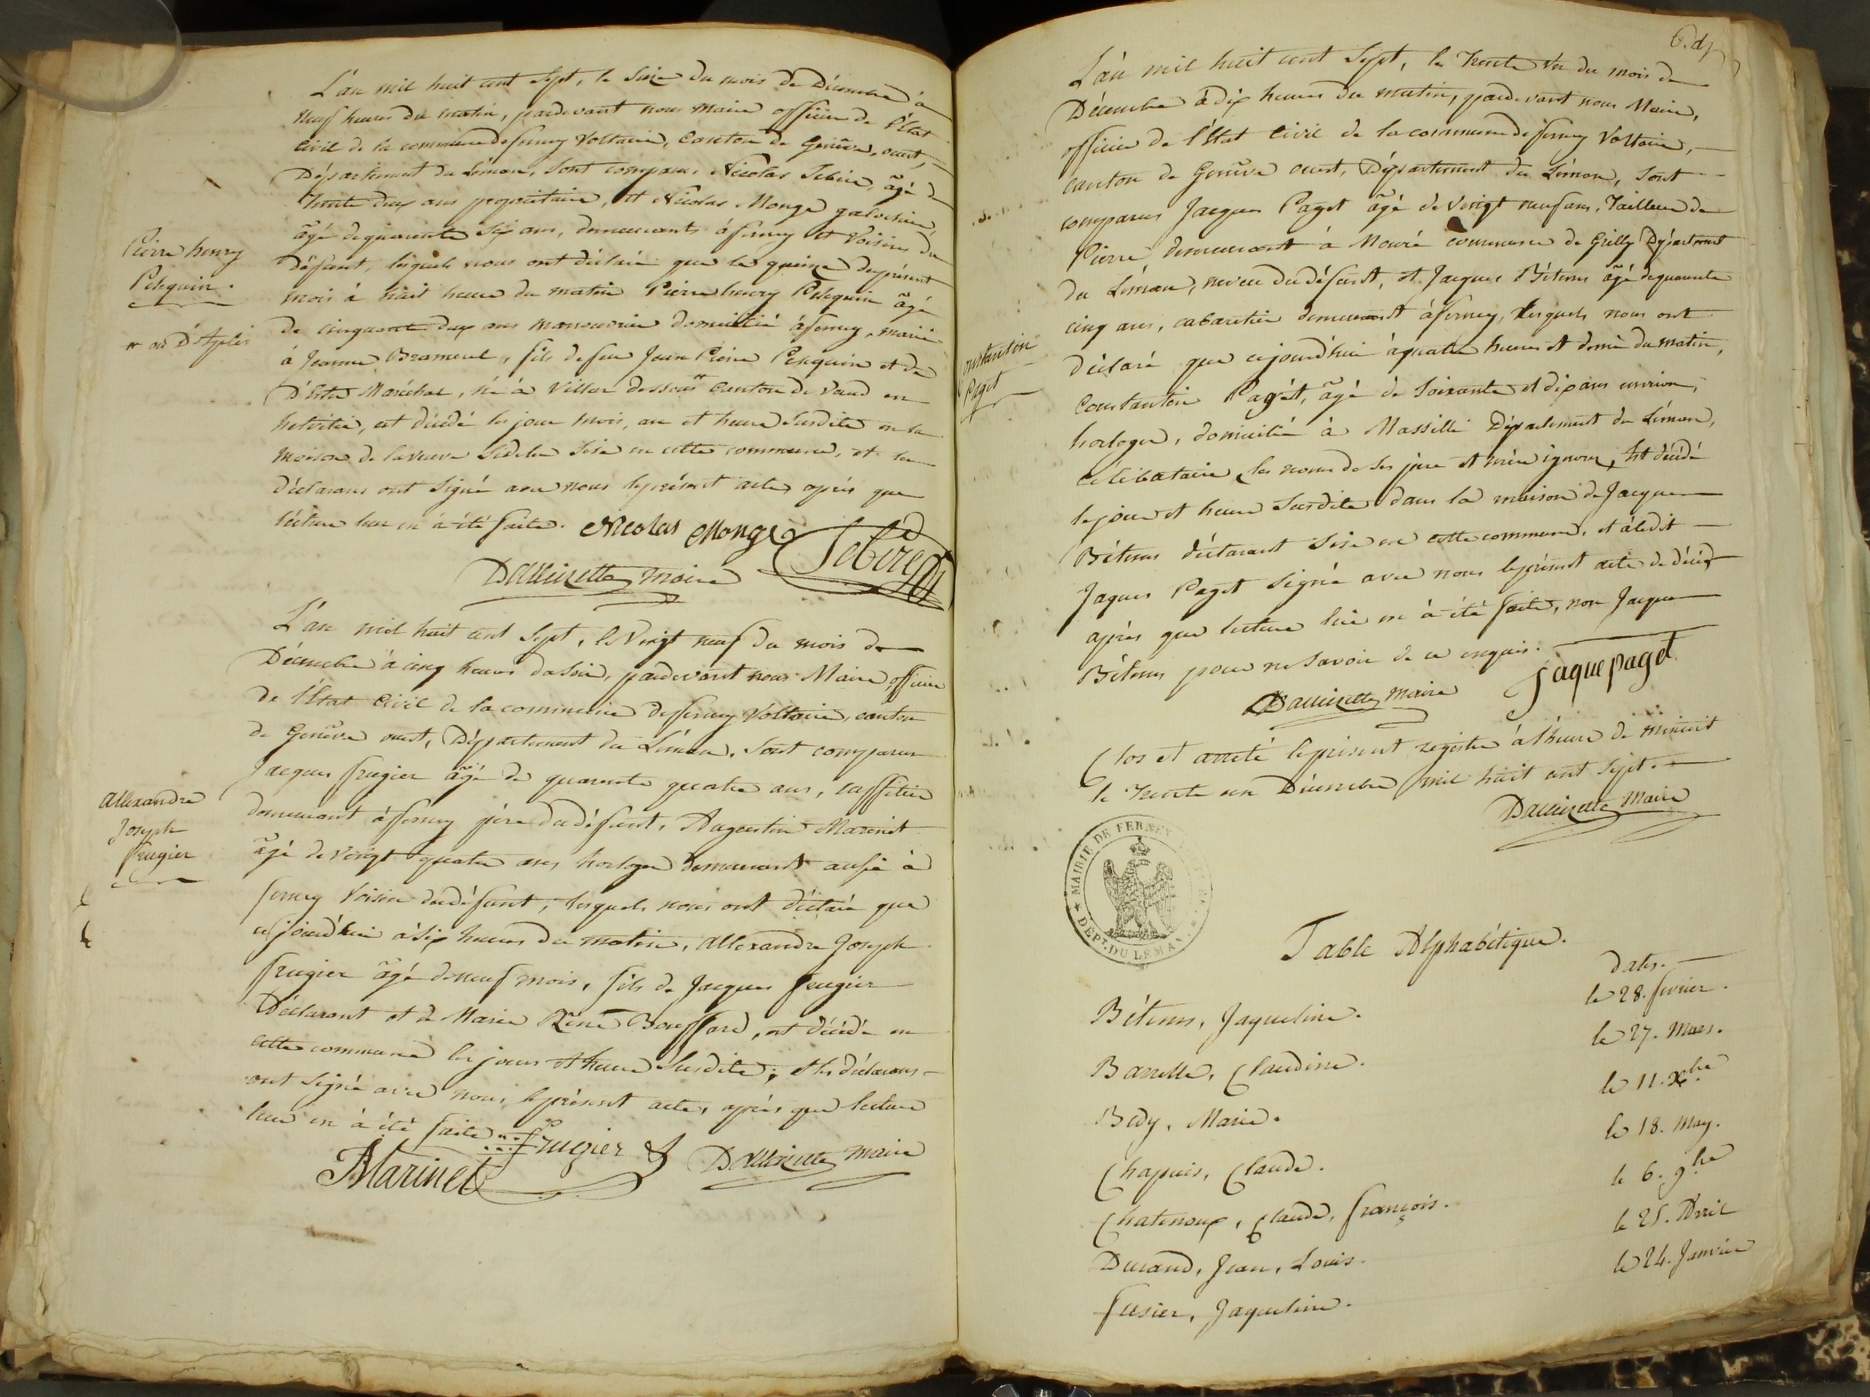 L'an mil huit cent sept, le seize du mois de Décembre à
neuf heures du matin, pardevant nous Maire officier de l'état
civil de la commune de ferney Voltaire, Canton de Genêve, ouest,
Département du Léman, sont comparus Nicolas Sebire, âgé de
trente deux ans propriétaire, et Nicolas Monge
âgé de quarante six ans, demeurants à ferney et Voisins du
Défunt, lesquels nous ont déclaré que le quinze du présent
mois à huit heures du matin Pierre henry Peliquin âgé
de cinquante deux ans manouvrier domicilié à ferney, marié
à Jeanne Brameret, fils de feu Jean Pierre Peliquin et de
Maréchal, né à Villar dessous * Canton de Vaud en
helvétie, est décédé les jour mois, an et heure susdite en la
maison de la veuve sise en cette commune, et les
déclarans ont signé avec nous le présent acte, après que
lecture leur en à été faite. Nicolas Monge Sebire
Dallizette maire
Pierre henry
Peliquin.
L'an mil huit cent sept, le Vingt neuf du mois de
Décembre à cinq heures du soir, pardevant nous Maire officier
de l'Etat Civil de la commune de ferney Voltaire, canton
de Genêve ouest, Département du Léman, sont comparus
Jacques frugier âgé de quarante quatre ans, caffetier
demeurant à ferney père du défunt, Augustin Marinet
âgé de Vingt quatre ans, horloger demeurant aussi à
ferney Voisin du défunt, lesquels nous ont déclaré que
cejourd'hui à six heures du matin, allexandre Joseph
frugier âgé de neuf mois, fils de Jacques frugier
Déclarant et de Marie René Bouffard, est décédé en
cette commune les jours et heure susdite; et les déclarans
ont signé avec nous, le présent acte, après que lecture
leur en à été faite frugier
AMarinet Dallizette maire
allexandre
Joseph
frugier
L'an mil huit cent sept, le trente un du mois de
Décembre à dix heures du matin, pardevant nous Maire,
officier de l'Etat Civil de la commune de ferney Voltaire,
canton de Genêve ouest, Département du Léman, sont
comparus Jacques Paget âgé de vingt neuf ans, Tailleur de
Pierre demeurant à Mouré commune de Grilly Département
du Léman, neveu du défunt, et Jacques Bétems âgé de quarante
cinq ans, cabaretier demeurant à ferney, lesquels nous ont
déclaré que cejourd'hui à quatre heures et demi du matin,
Constantin Paget, âgé de soixante et dix ans environ,
horloger, domicilié à Massilli Département du Léman,
célibataire, les noms de ses père et mère ignorés, est décédé
le jour et heure susdite dans la maison de Jacques
Bétems déclarant sise en cette commune, et a ledit
Jaques Paget signé avec nous le présent acte de décès
après que lecture lui en à été faite, non Jacques
Bétems pour ne savoir de ce enquis.
Dallizette maire Jaque paget
onstantin
Paget
Clos et arreté le présent registre à l'heure de minuit
le trente un Décembre mil huit cent sept.
Dallizette Maire
MAIRIE DE FERNEY
DEPT. DU LEMAN.
Table Alphabétique.
Dates.
Bétems, Jaqueline. le 28. fevrier.
Barrelle, Claudine. le 27. Mars.
Bedy, Marie. le 11. Xbre
Chapuis, Claude. le 18. May.
Chatenoux, Claude, françois. le 6. 9bre
Durand, Jean, Louis. le 25. Avril
fusier, Jaqueline. le 24. Janvier